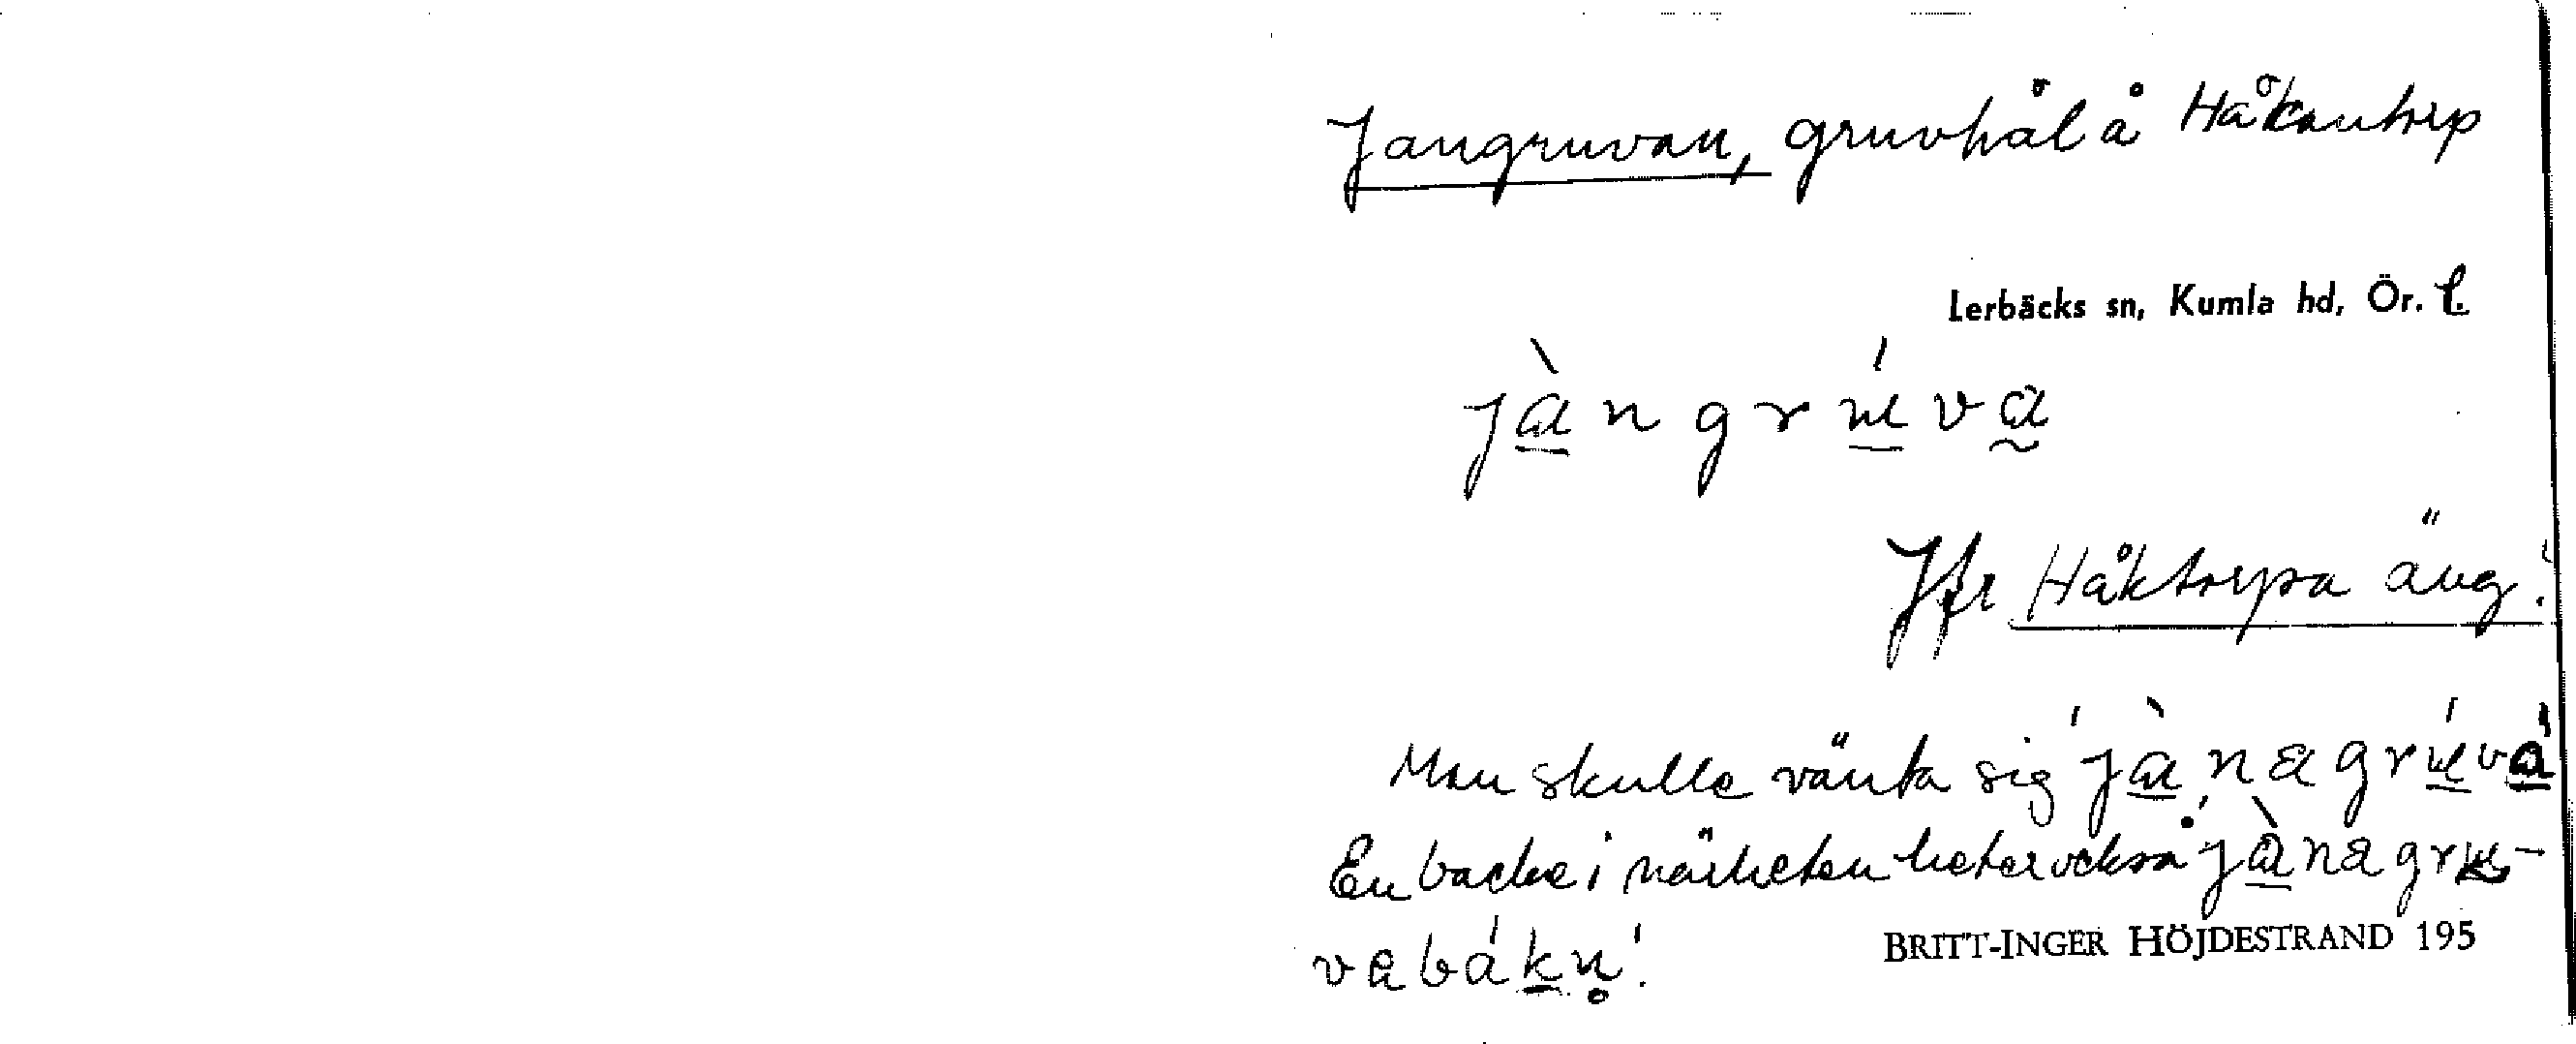 Jangruvan, gruvhål å Håkantorp
Lerbäcks sn, Kumla hd, Ör. l.
jàngrúva
Jfr Håktorpa äng!
Man skulle vänta sig jànagrúva
En backe i närheten heter också jànagru-
vabákn!
BRITT-INGER HÖJDESTRAND 195